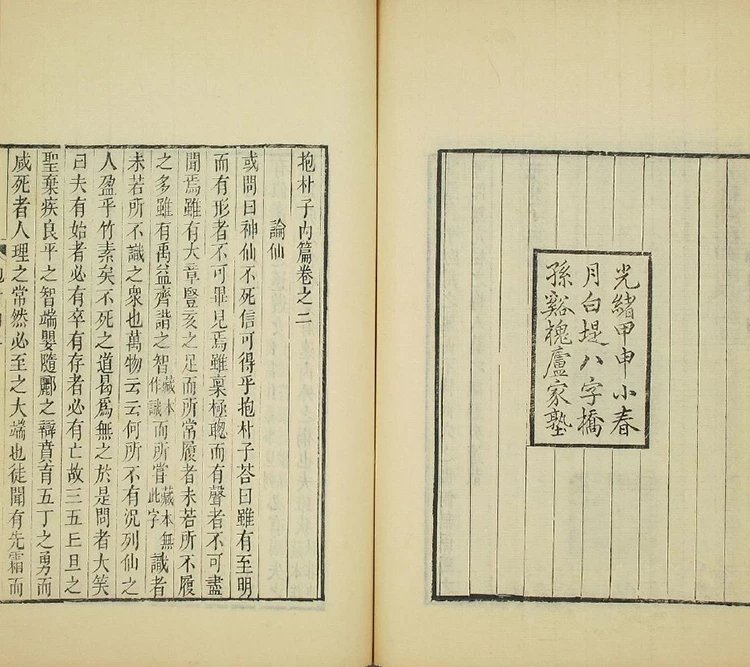 光緒甲申小春
月白堤八字橋
孫谿槐廬家塾
抱朴子内篇卷之二
論仙
或問曰神仙不死信可得乎抱朴子荅曰雖有至明
而有形者不可畢見焉雖稟極聰而有聲者不可盡
聞焉雖有大章豎亥之足而所常履者未若所不履
之多雖有禹益齊諧之智藏本作識而所嘗藏本無此字識者
未若所不識之衆也萬物云云何所不有況列仙之
人盈乎竹素矣不死之道曷爲無之於是問者大笑
曰夫有始者必有卒有存者必有亡故三五丘旦之
聖棄疾良平之智端嬰隨酈之辯賁育五丁之勇而
咸死者人理之常然必至之大端也徒聞有先霜而